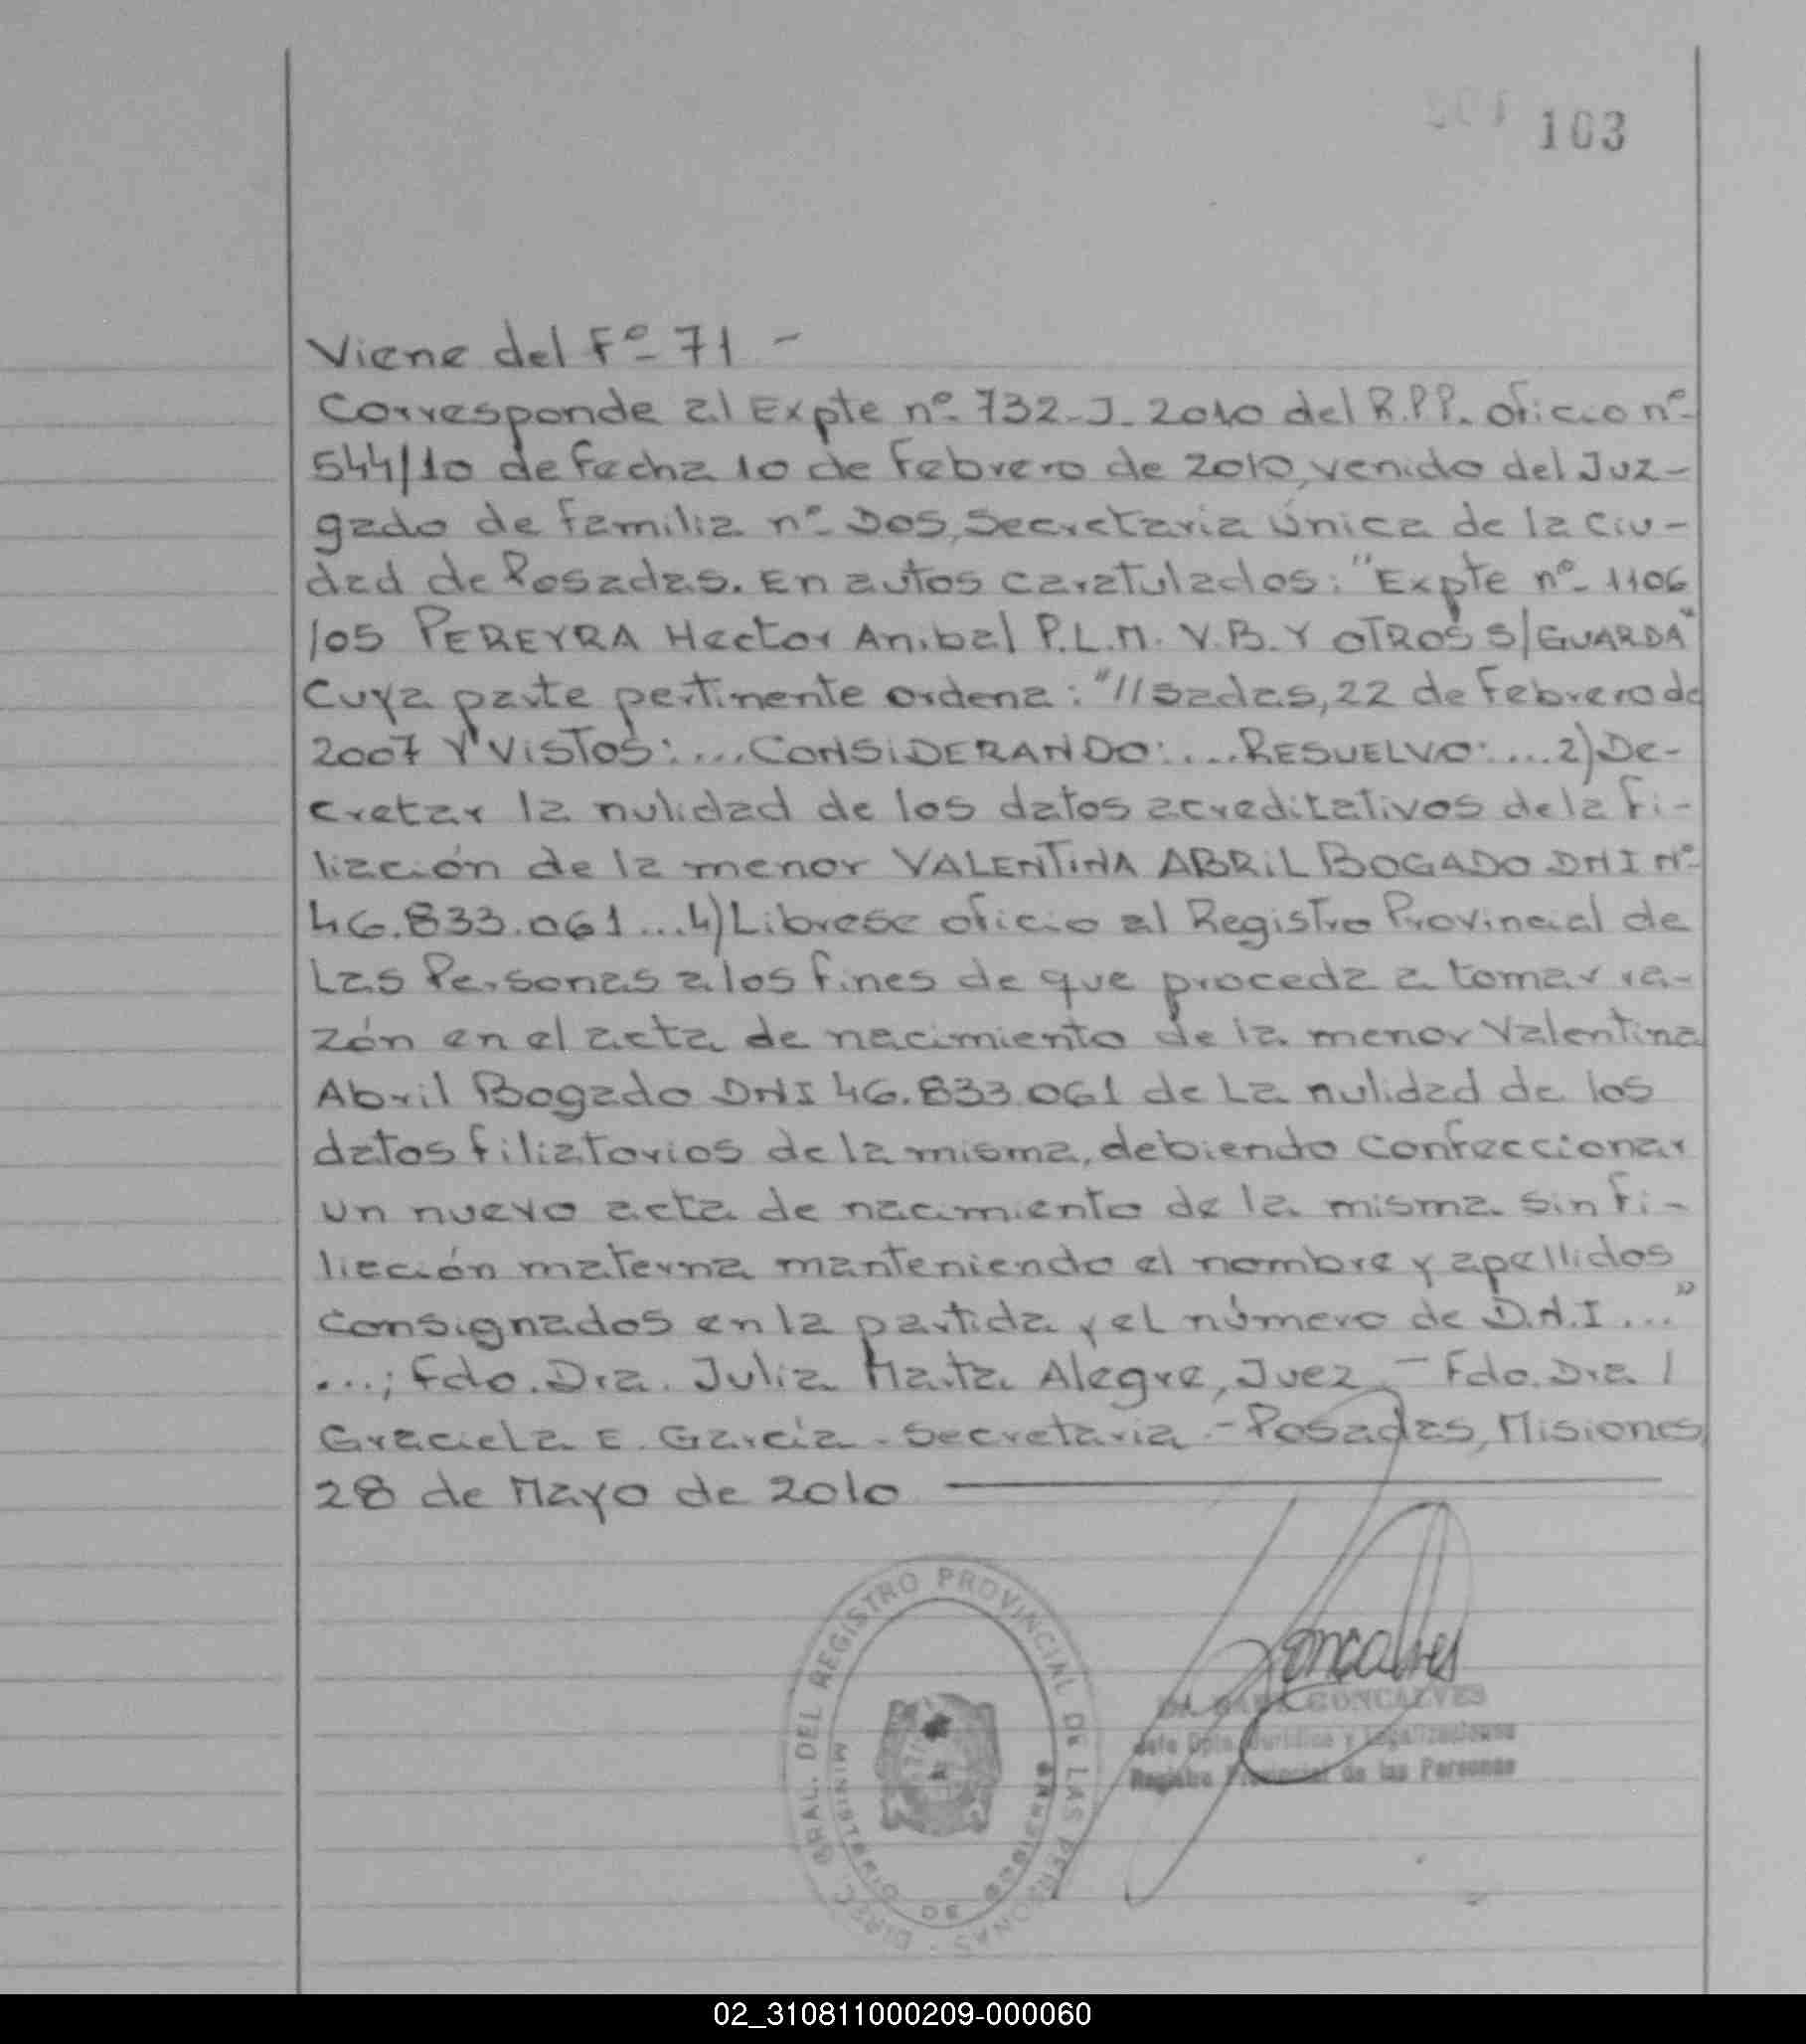 103
Viene del Fº 71 -
Corresponde al Expte nº 732-J-2010 del R.P.P. oficio nº
544/10 de fecha 10 de Febrero de 2010, venido del Juz-
gado de familia nº Dos, Secretaria Única de la Ciu-
dad de Posadas. En autos caratulados: "Expte nº 1106
/05 PEREYRA Hector Anibal P.L.M. V.B. Y OTROS S/GUARDA"
Cuya parte pertinente ordena: "//sadas, 22 de Febrero de
2007 Y VISTOS:...CONSIDERANDO:...RESUELVO:...2)De-
cretar la nulidad de los datos acreditativos de la fi-
liación de la menor VALENTINA ABRIL BOGADO DNI Nº
46.833.061...4)Librese oficio al Registro Provincial de
Las Personas a los fines de que proceda a tomar ra-
zón en el acta de nacimiento de la menor Valentina
Abril Bogado DNI 46.833.061 de La nulidad de los
datos filiatorios de la misma, debiendo confeccionar
un nuevo acta de nacimiento de la misma sin fi-
liación materna manteniendo el nombre y apellidos
consignados en la partida y el número de D.N.I..."
...; fdo. Dra. Julia Marta Alegre, Juez.- Fdo. Dra /
Graciela E. García. Secretaria.- Posadas, Misiones,
28 de Mayo de 2010
DIREC. GRAL. DEL REGISTRO PROVINCIAL DE LAS PERSONAS
MINISTERIO DE
Goncalves
GONCALVES
Jefe Dpto. Jurídico y Legalizaciones
Registro Provincial de las Personas
02_310811000209-000060